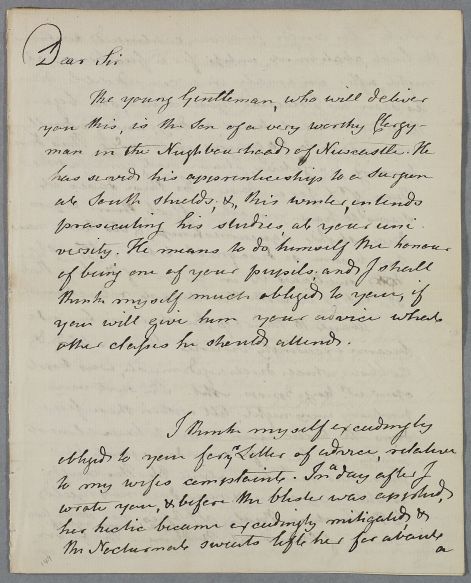 Dear Sir
The young Gentleman, who will deliver
you this, is the son of a very worthy Clergy-
man in the Neighbourhood of Newcastle. He
has served his apprenticeship to a surgeon
at South shields; &, this winter, intends
prosecuting his studies, at your uni-
versity. He means to do, himself the honour
of being one of your pupils, and I shall
think myself much obliged to you, if
you will give him your advice what
other classes he should attend.
I think myself exceedingly
obliged to your Letter of advice, relative
to my wifes complaints. In a day after I
wrote you, & before the blister was applied,
her hectic became exceedingly mitigated, &
the Nocturnal sweats left her for about
a